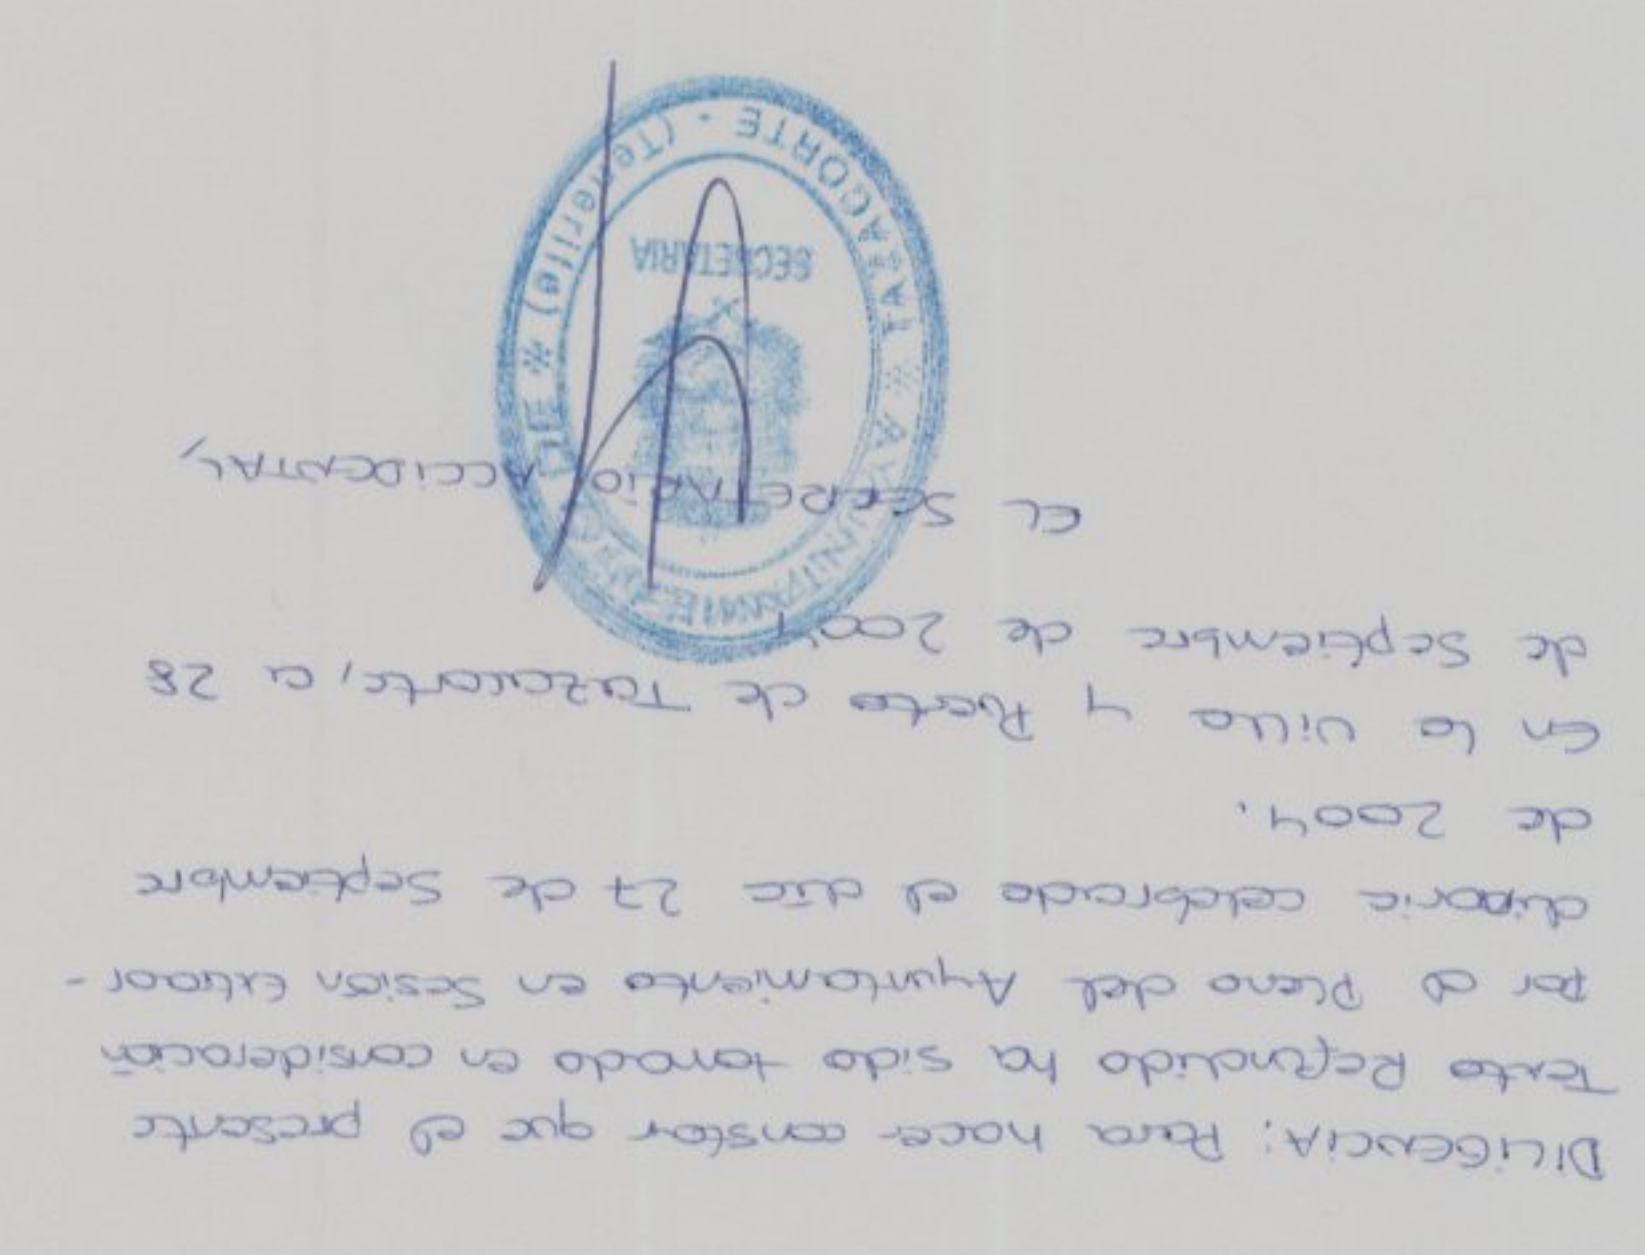 DILIGENCIA: Para hacer constar que el presente
Texto Refundido ha sido tomado en consideración
por el Pleno del Ayuntamiento en Sesión Extraor-
dinaria celebrada el día 27 de Septiembre
de 2004.
En la Villa y Puerto de Tazacorte, a 28
de Septiembre de 2004
EL SECRETARIO ACCIDENTAL,
AYUNTAMIENTO DE
* TAZACORTE - (Tenerife) *
SECRETARIA